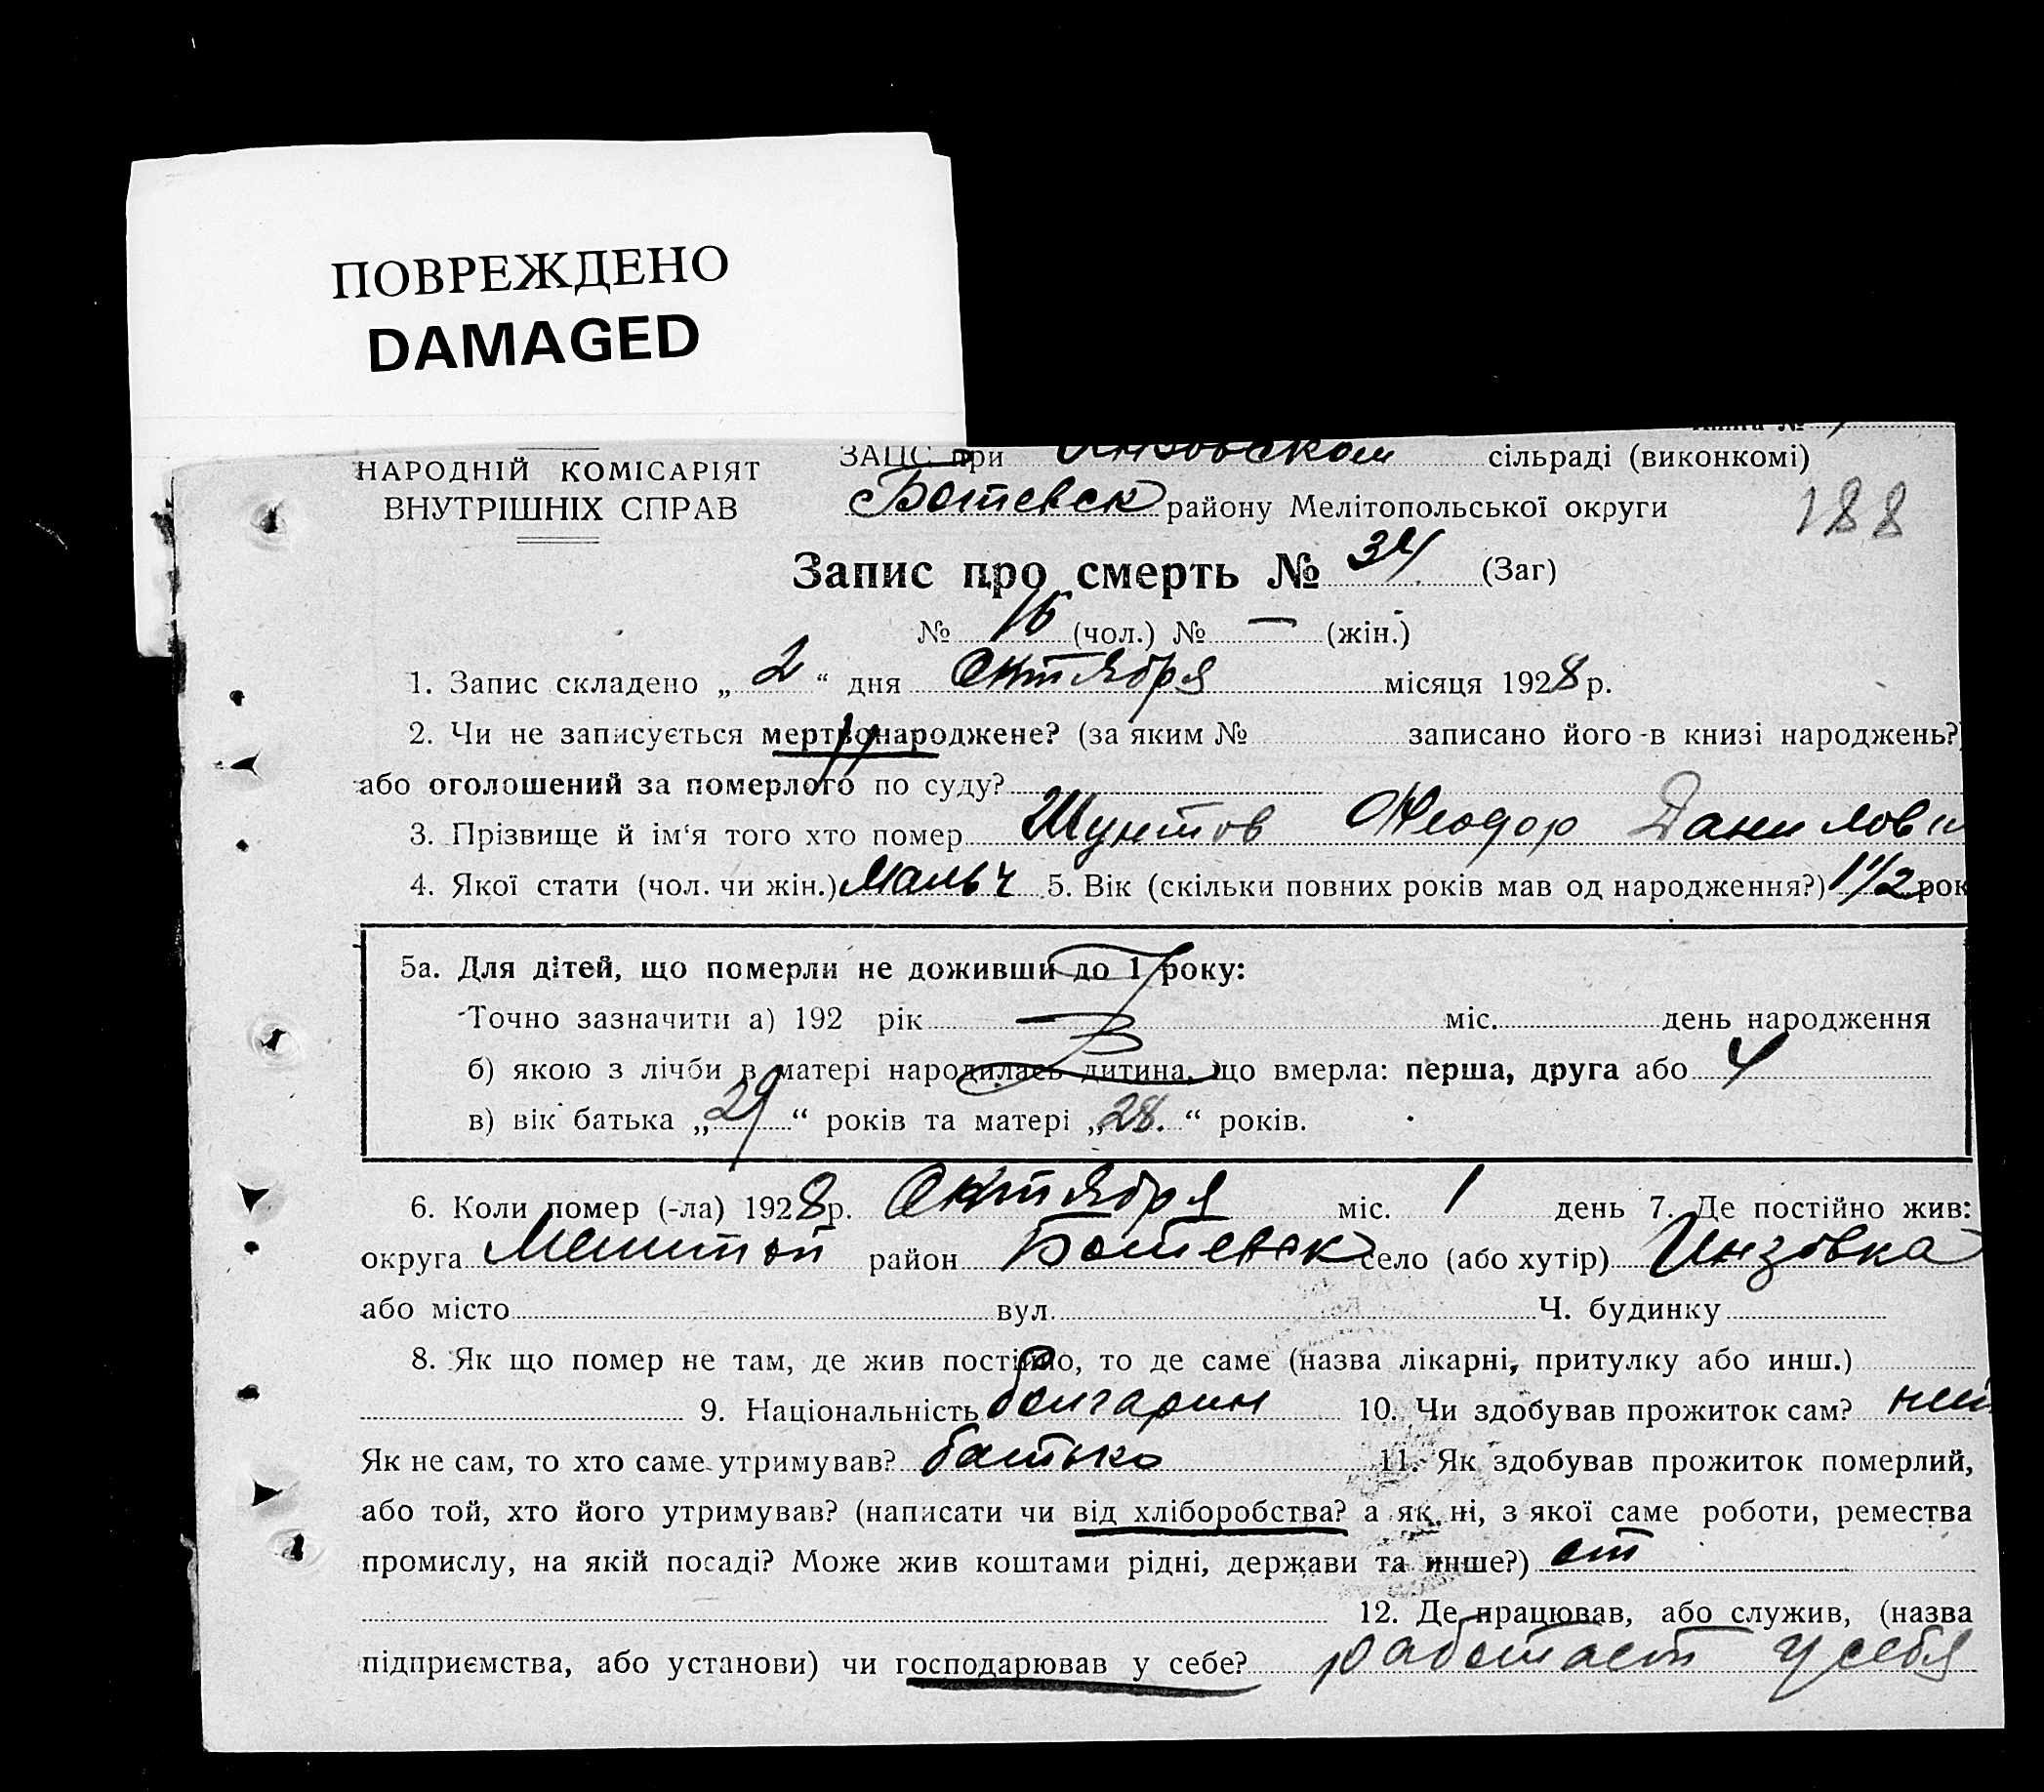 ПОВРЕЖДЕНО
DAMAGED
Книга №
НАРОДНІЙ КОМІСАРІЯТ
ВНУТРІШНІХ СПРАВ
ЗАГС при Инзовском сільраді (виконкомі)
Ботевск району Мелітопольської округи
188
Запис про смерть № 34 (Заг)
№ 16 (чол.) № — (жін.)
1. Запис складено „ 2 “ дня Октября місяця 1928 р.
2. Чи не записується мертвонароджене? (за яким № записано його в книзі народжень?)
або оголошений за померлого по суду?
3. Прізвище й ім‘я того хто помер Шунтов Феодор Данилови
4. Якої стати (чол. чи жін.) Мальч 5. Вік (скільки повних років мав од народження?) 1 1/2 рок
5а. Для дітей, що померли не доживши до 1 року:
Точно зазначити а) 192 рік міс. день народження
б) якою з лічби в матері народилась дитина, що вмерла: перша, друга або 4
в) вік батька „ 29 “ років та матері „ 28. “ років.
6. Коли помер (-ла) 1928 р. Октября міс. 1 день 7. Де постійно жив:
округа Мелитоп район Ботевск село (або хутір) Инзовка
або місто вул. Ч. будинку
8. Як що помер не там, де жив постійно, то де саме (назва лікарні, притулку або инш.)
9. Національність болгарин 10. Чи здобував прожиток сам? нет
Як не сам, то хто саме утримував? батько 11. Як здобував прожиток померлий,
або той, хто його утримував? (написати чи від хліборобства? а як ні, з якої саме роботи, ремества
промислу, на якій посаді? Може жив коштами рідні, держави та инше?) от
12. Де працював, або служив, (назва
підприємства, або установи) чи господарював у себе? работает у себя